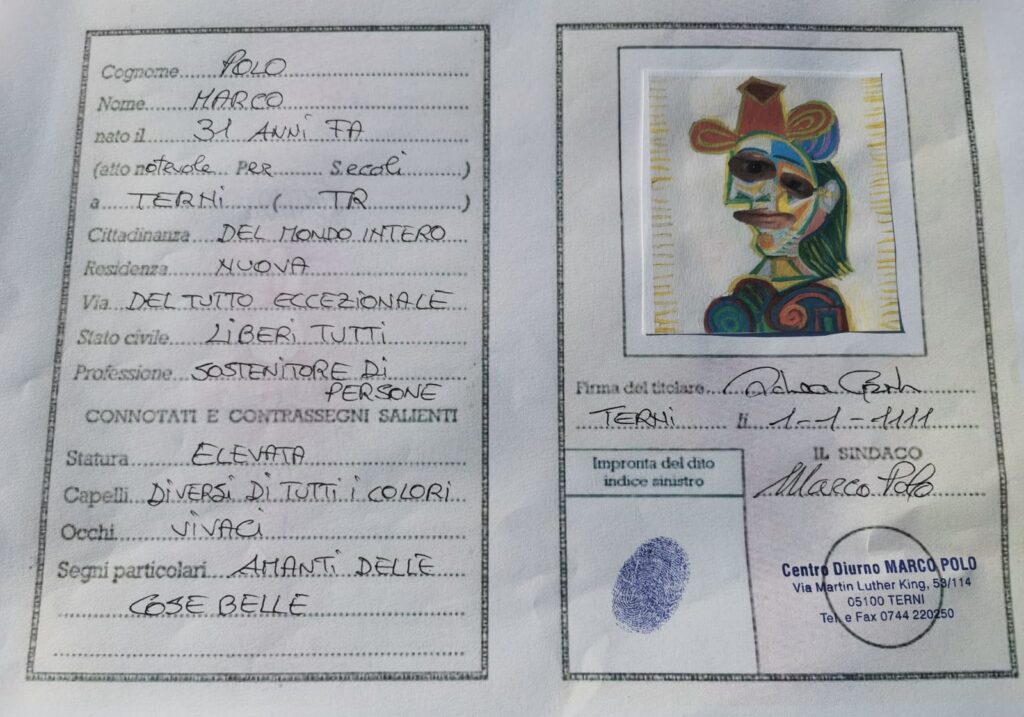 Cognome POLO
Nome MARCO
nato il 31 ANNI FA
(atto notevole Per Secoli)
a TERNI (TR)
Cittadinanza DEL MONDO INTERO
Residenza NUOVA
Via DEL TUTTO ECCEZIONALE
Stato civile LIBERI TUTTI
Professione SOSTENITORE DI
PERSONE
CONNOTATI E CONTRASSEGNI SALIENTI
Statura ELEVATA
Capelli DIVERSI DI TUTTI I COLORI
Occhi VIVACI
Segni particolari AMANTI DELLE
COSE BELLE
Firma del titolare
TERNI li 1-1-1111
IL SINDACO
Marco Polo
Impronta del dito
indice sinistro
Centro Diurno MARCO POLO
Via Martin Luther King, 53/114
05100 TERNI
Tel. e Fax 0744 220250